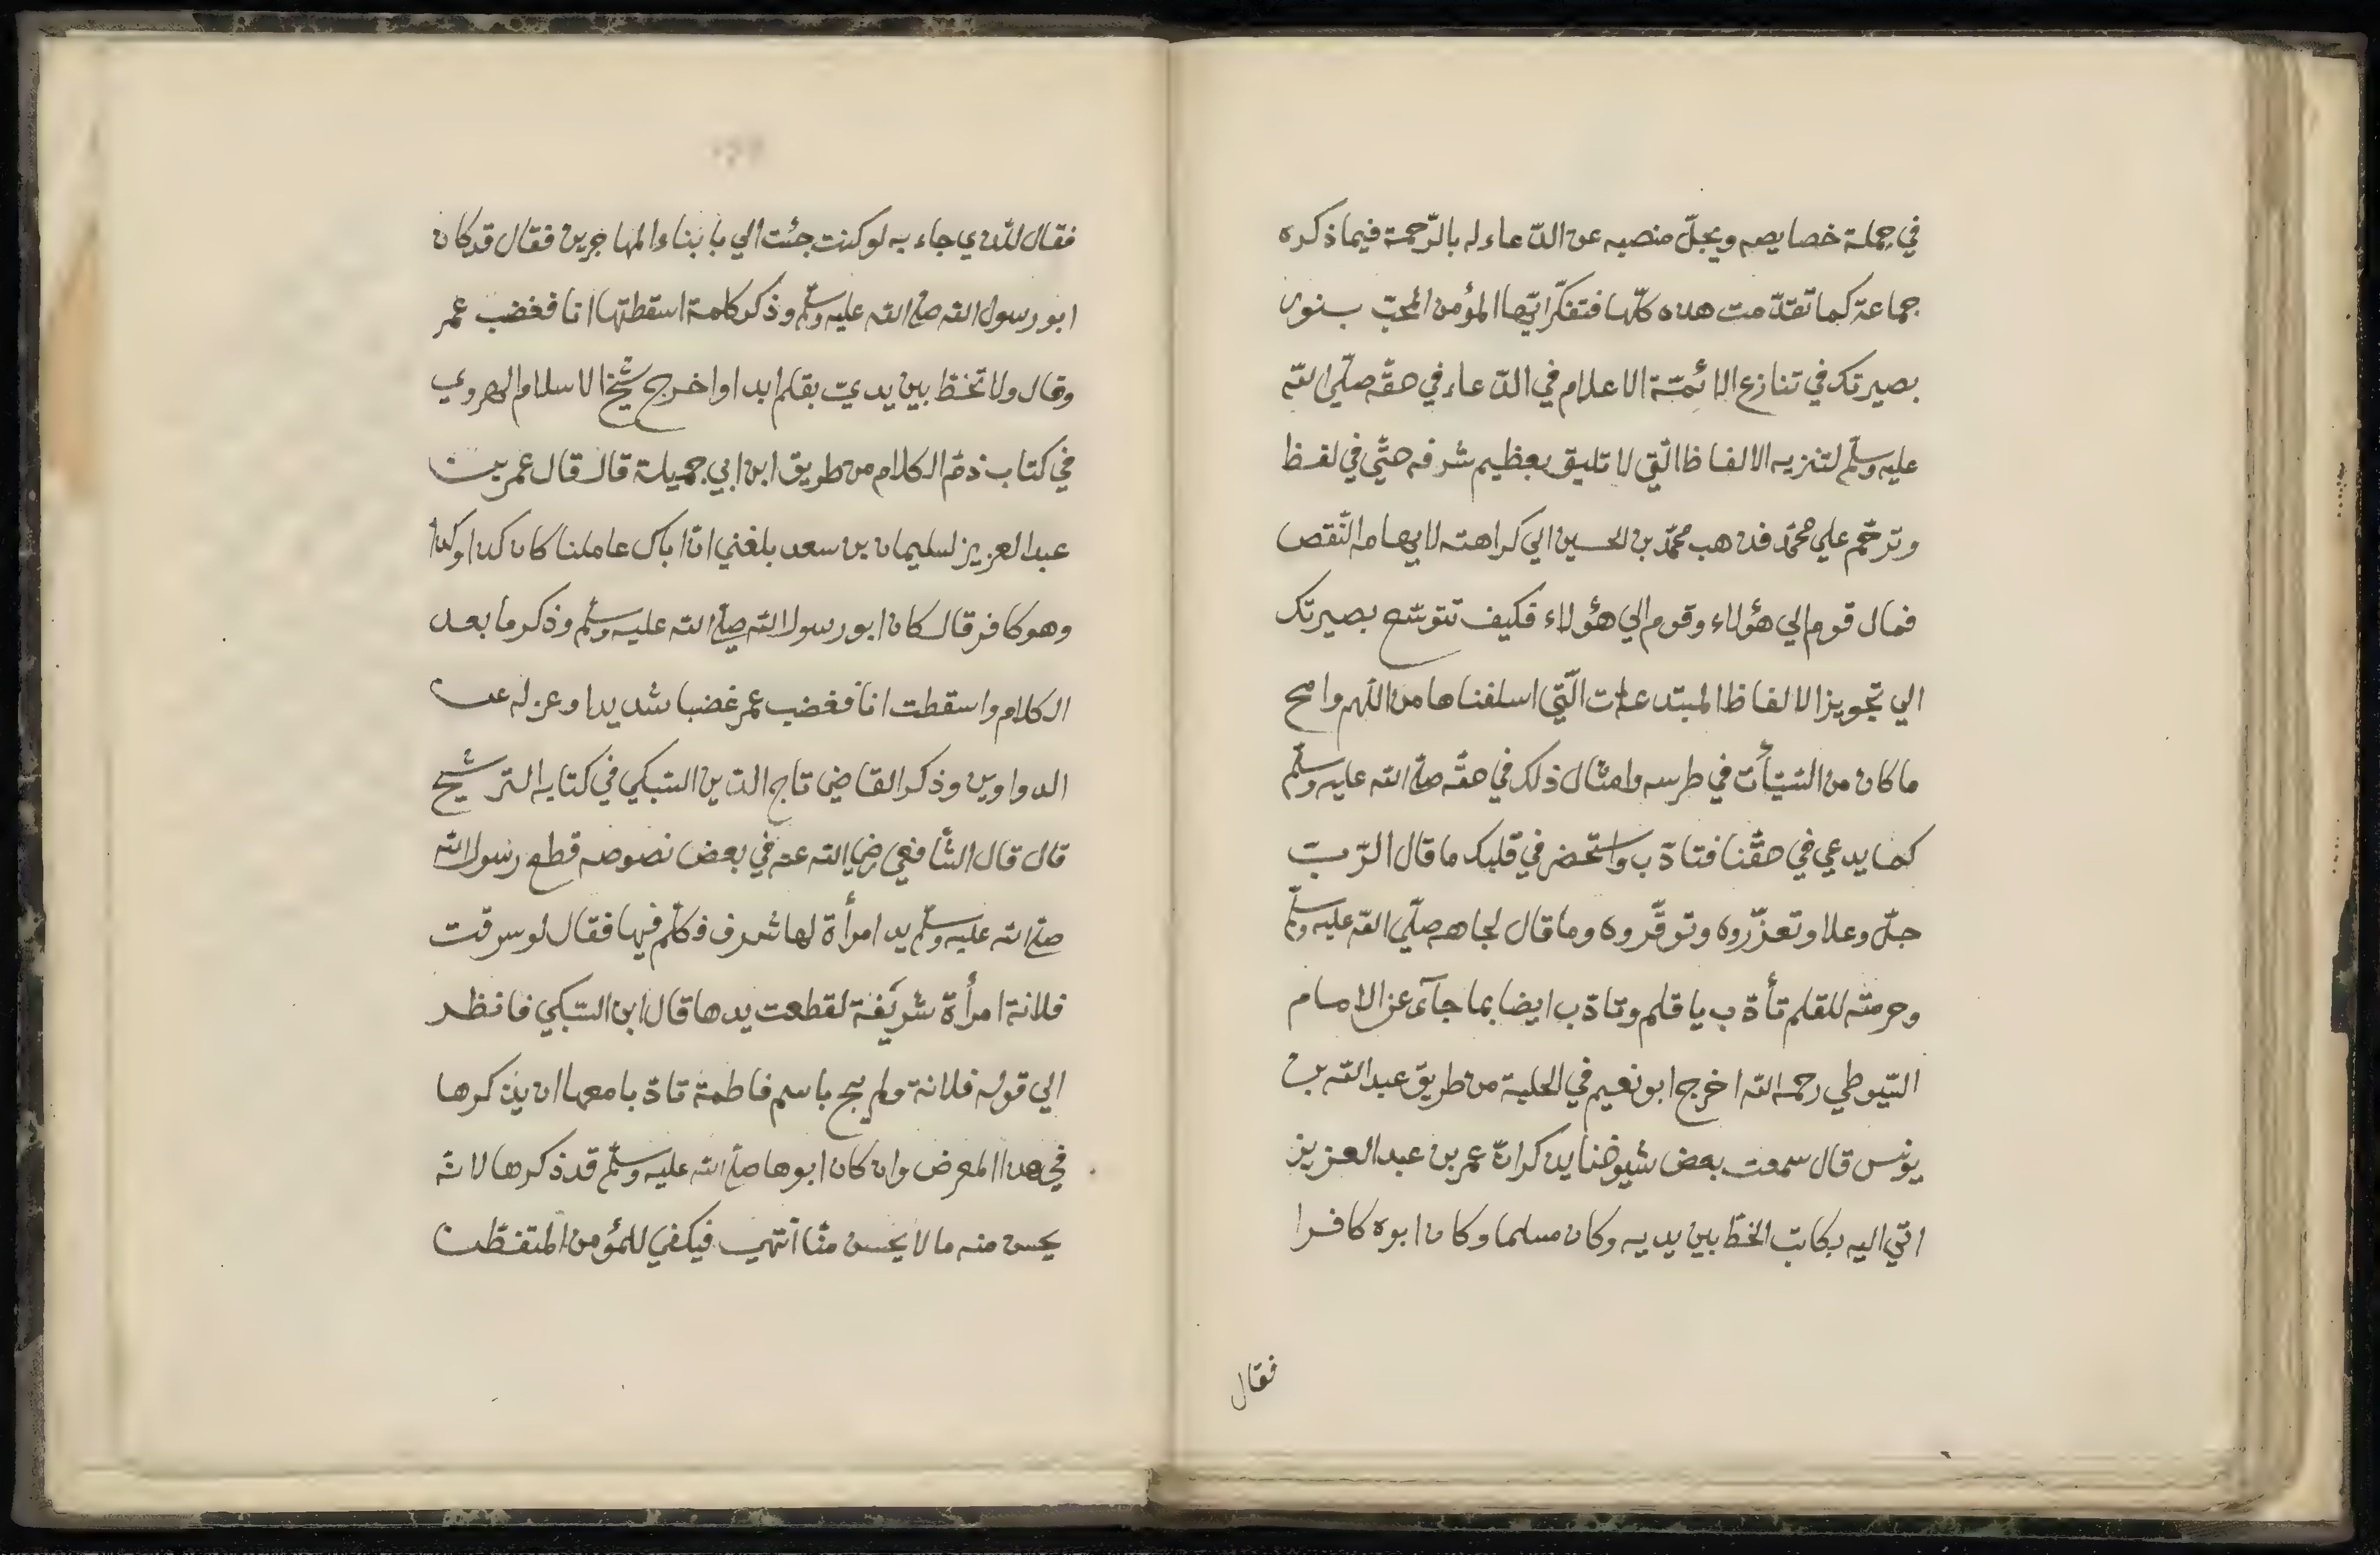 في جملة خصايصه ويجلّ منصبه عن الدّعاء له بالرّحمة فيما ذكره
جماعة كما تقدّمت هذه كلّها فتفكّر ايّها المؤمن المحبّ بنور
بصيرتك في تنازع الائمّة الاعلام في الدّعاء في حقّه صلّي الله
عليه وسلّم لتنزيه الالفاظ الّتي لا تليق بعظيم شرفه حتّي في لفظ
وترحّم علي محمّد فذهب محمّد بن الحسين الي كراهته لايهامه النّقص
فمال قوم الي هؤلاء وقوم الي هؤلاء فكيف تتوسّع بصيرتك
الي تجويز الالفاظ المبتدعات الّتي اسلفناها من اللّهم وامح
ما كان من السّيّأت في طرسه وامثال ذلك في حقّه صلّي الله عليه وسلّم
كما يدعي في حقّنا فتادّب واستحضر في قلبك ما قال الرّبّ
جلّ وعلا وتعزّروه وتوقّروه وما قال لجاهه صلّي الله عليه وسلّم
وحرمته للقلم تأدّب يا قلم وتادّب ايضا بما جآء عن الامام
السّيوطي رحمه الله اخرج ابو نعيم في الحلية من طريق عبد الله بن
يونس قال سمعت بعض شيوخنا يذكر انّ عمر بن عبد العزيز
اتي اليه بكاتب الخطّ بين يديه وكان مسلما وكان ابوه كافرا
فقال
فقال للّذي جاء به لو كنت جئت الي بابناء المهاجرين فقال قد كان
ابو رسول الله صلّي الله عليه وسلّم وذكر كلمة اسقطتها انا فغضب عمر
وقال ولا تخطّ بين يديّ بقلم ابدا واخرج شيخ الاسلام الهروي
في كتاب ذمّ الكلام من طريق ابن ابي جميلة قال قال عمر بن
عبد العزيز لسليمان بن سعد بلغني انّ اباك عاملنا كان كذا وكذا
وهو كافر قال كان ابو رسول الله صلّي الله عليه وسلّم وذكر ما بعد
الكلام واسقطت انا فغضب عمر غضبا شديدا وعزله عن
الدواوين وذكر القاضي تاج الدّين السّبكي في كتابه الترشيح
قال قال الشّافعي رضي الله عنه في بعض نصوصه قطع رسول الله
صلّي الله عليه وسلّم يد امرأة لها شرف فكلّم فيها فقال لو سرقت
فلانة امرأة شريفة لقطعت يدها قال ابن السّبكي فانظر
الي قوله فلانة ولم يبح باسم فاطمة تادّبا معها ان يذكرها
في هذا المعرض وان كان ابوها صلّي الله عليه وسلّم قد ذكرها لانّه
يحسن منه ما لا يحسن منّا انتهي فيكفي للمؤمن المتفطّن